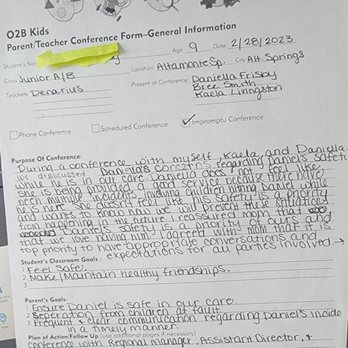 O2B Kids
Parent/Teacher Conference Form–General Information
Student's Name y Age 9 Date 2/28/2023
Class Junior A/B Location Altamonte Sp. City Alt. Springs
Teachers Denarius Present at Conference: Daniella Frisby
Bree Smith
Kaela Livingston
Phone Conference Scheduled Conference Impromptu Conference
Purpose Of Conference:
During a conference with myself, Kaela and Daniella
we discussed Daniella's concerns regarding Daniel's safety
while he is in our care. Daniella does not feel like
she is being provided a good service because there have
been multiple incidents involving children hitting Daniel while
he is here. She doesn't feel like his safety is a priority
and wants to know how we will prevent these situations
from happening in the future. I reassured mom that
Daniel's safety is a priority of ours and
that we love having him. I agreed with mom that it is
top priority to have appropriate conversations and
expectations for all parties involved →
Student's Classroom Goals:
1 Feel Safe.
2 Make/Maintain healthy friendships.
3
Parent's Goals:
1 Ensure Daniel is safe in our care.
2 Seperation from children at fault
3 Frequent & clear communication regarding Daniel's incide
in a timely manner.
Plan of Action/Follow Up (use additional pages if necessary)
conference with Regional manager, Assistant Director, &